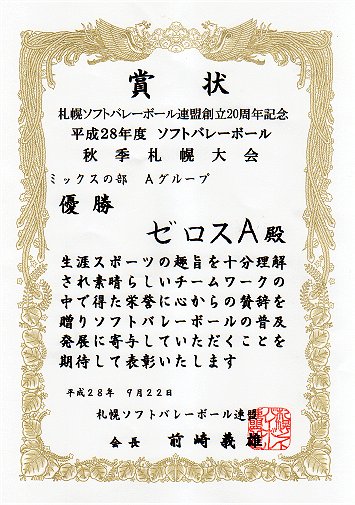 賞状
札幌ソフトバレーボール連盟創立20周年記念
平成28年度 ソフトバレーボール
秋季札幌大会
ミックスの部 Aグループ
優勝
ゼロスA殿
生涯スポーツの趣旨を十分理解
され素晴らしいチームワークの
中で得た栄誉に心からの賛辞を
贈りソフトバレーボールの普及
発展に寄与していただくことを
期待して表彰いたします
平成28年 9月22日
札幌ソフトバレーボール連盟
会長 前崎義雄